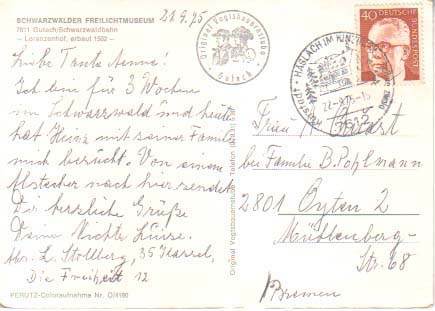 SCHWARZWÄLDER FREILICHTMUSEUM
7611 Gutach/Schwarzwaldbahn
– Lorenzenhof, erbaut 1592 –
21.9.75
Liebe Tante Nenne!
Ich bin für 3 Wochen
im Schwarzwald und heute
hat Heinz mit seiner Familie
mich besucht. Von einem
Abstecher nach hier sendet
Dir herzliche Grüße
Deine Nichte Luise.
Abs. L. Stollberg, 35 Kassel,
Die Freiheit 12
PERUTZ-Coloraufnahme Nr. O/4190
Original Vogtsbauernstube
Gutach
Original Vogtsbauernstube - Telefon
HASLACH IM KINZIGTAL
22.-9.75-15
7612
40
DEUTSCHE BUNDESPOST
Frau
bei Familie B. Pohlmann
2801 Oyten 2
Mühlenberg-
Str. 68
/Bremen